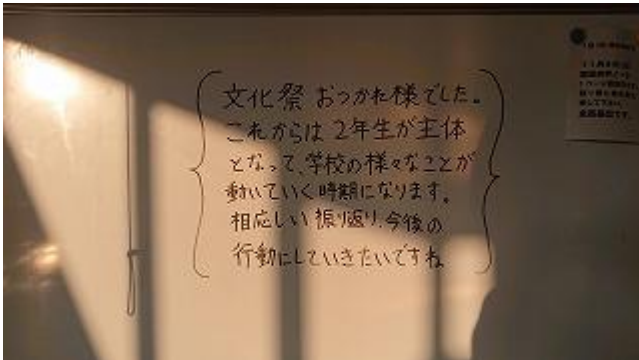 文化祭 おつかれ様でした。
これからは 2年生が主体
となって、学校の様々なことが
動いていく時期になります。
相応しい振り返り、今後の
行動にしていきたいですね